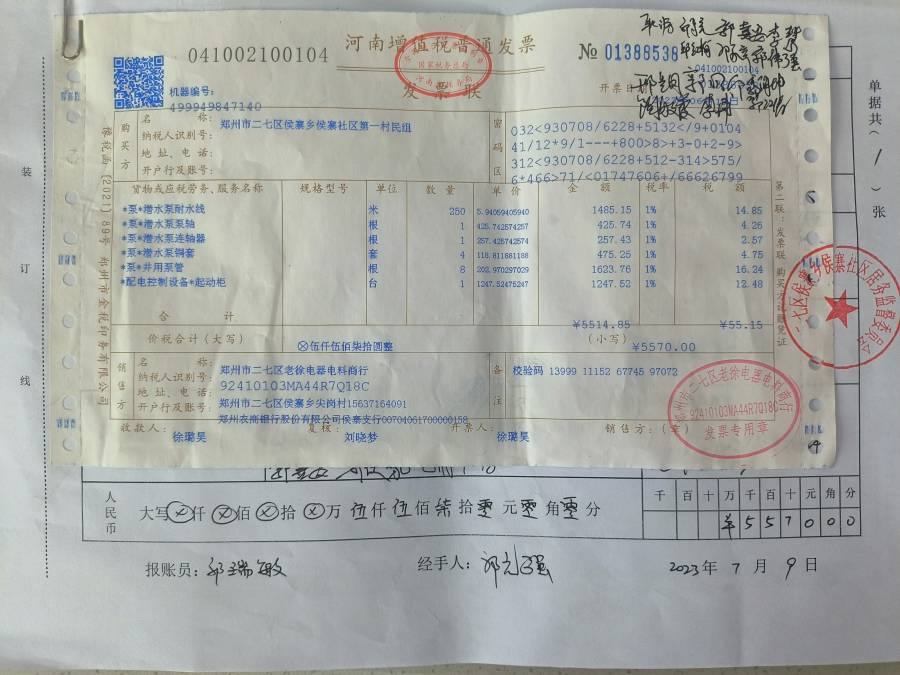 041002100104
河南增值税普通发票
发票联
国家税务总局
№ 01388538
041002100104
机器编号:
499949847140
开票日
购买方
名 称:
郑州市二七区侯寨乡侯寨社区第一村民组
纳税人识别号:
地 址、电 话:
开户行及账号:
密码区
032<930708/6228+5132</9+0104
41/12*9/1---+800>8>+3-0+2-9>
312<930708/6228+512-314>575/
6*466>71/<01747606+/66626799
货物或应税劳务、服务名称 规格型号 单位 数 量 单 价 金 额 税率 税 额
*泵*潜水泵耐水线 米 250 5.94059405940 1485.15 1% 14.85
*泵*潜水泵泵轴 根 1 425.742574257 425.74 1% 4.26
*泵*潜水泵连轴器 根 1 257.425742574 257.43 1% 2.57
*泵*潜水泵铜套 套 4 118.811881188 475.25 1% 4.75
*泵*井用泵管 根 8 202.970297029 1623.76 1% 16.24
*配电控制设备*起动柜 台 1 1247.52475247 1247.52 1% 12.48
合 计 ¥5514.85 ¥55.15
价税合计(大写) ⊗伍仟伍佰柒拾圆整 (小写) ¥5570.00
销售方
名 称:
郑州市二七区老徐电器电料商行
纳税人识别号:
92410103MA44R7Q18C
地 址、电 话:
郑州市二七区侯寨乡尖岗村15637164091
开户行及账号:
郑州农商银行股份有限公司侯寨支行00704061700000158
备注
校验码 13999 11152 67745 97072
收款人: 徐璐昊 复核: 刘晓梦 开票人: 徐璐昊 销售方:(章)
郑州市二七区老徐电器电料商行
92410103MA44R7Q18C
发票专用章
第二联:发票联 购买方记账凭证
二七区侯寨乡侯寨社区居务监督委员会
单据共 1 张
装
订
线
人民币
大写 仟 佰 拾 万 伍仟伍佰柒拾零元零角零分
千 百 十 万 千 百 十 元 角 分
¥ 5 5 7 0 0 0
报账员: 郭瑞敏
经手人:
2023年 7 月 9 日